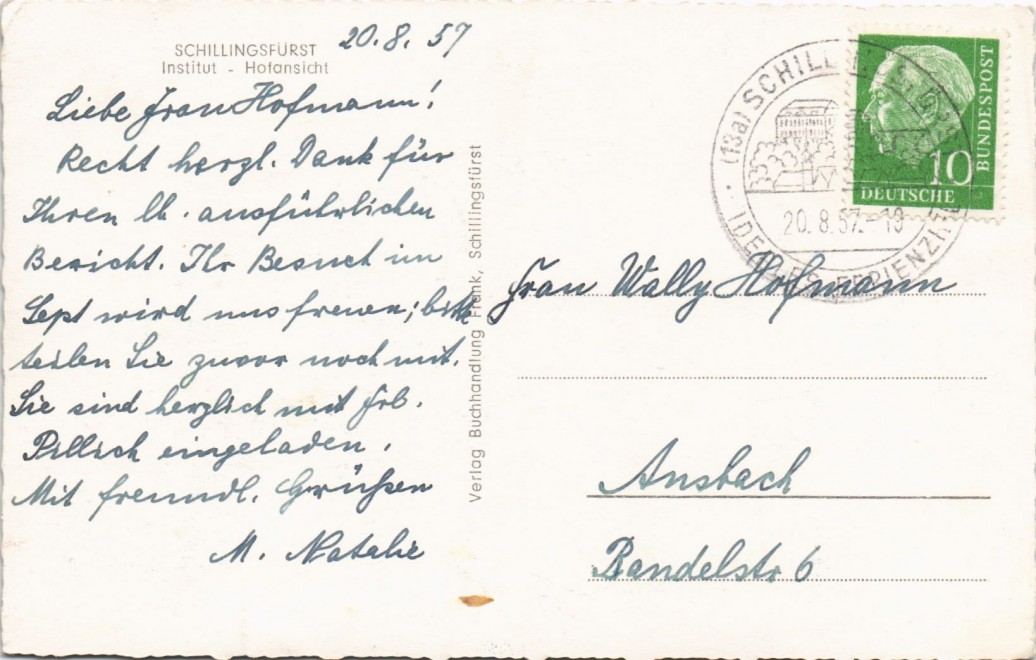 SCHILLINGSFÜRST
Institut - Hofansicht
20.8.57
Liebe Frau Hofmann!
Recht herzl. Dank für
Ihren lb. ausführlichen
Bericht. Ihr Besuch im
Sept wird uns freuen; bitte
teilen Sie zuvor noch mit.
Sie sind herzlich mit Frl.
Pillich eingeladen.
Mit freundl. Grüßen
M. Natalie
Verlag Buchhandlung Frank, Schillingsfürst
(13a) SCHILLINGSFÜRST
20.8.57.-19
IDEALES FERIENZIEL
10
DEUTSCHE
BUNDESPOST
Frau Wally Hofmann
Ansbach
Randelstr 6